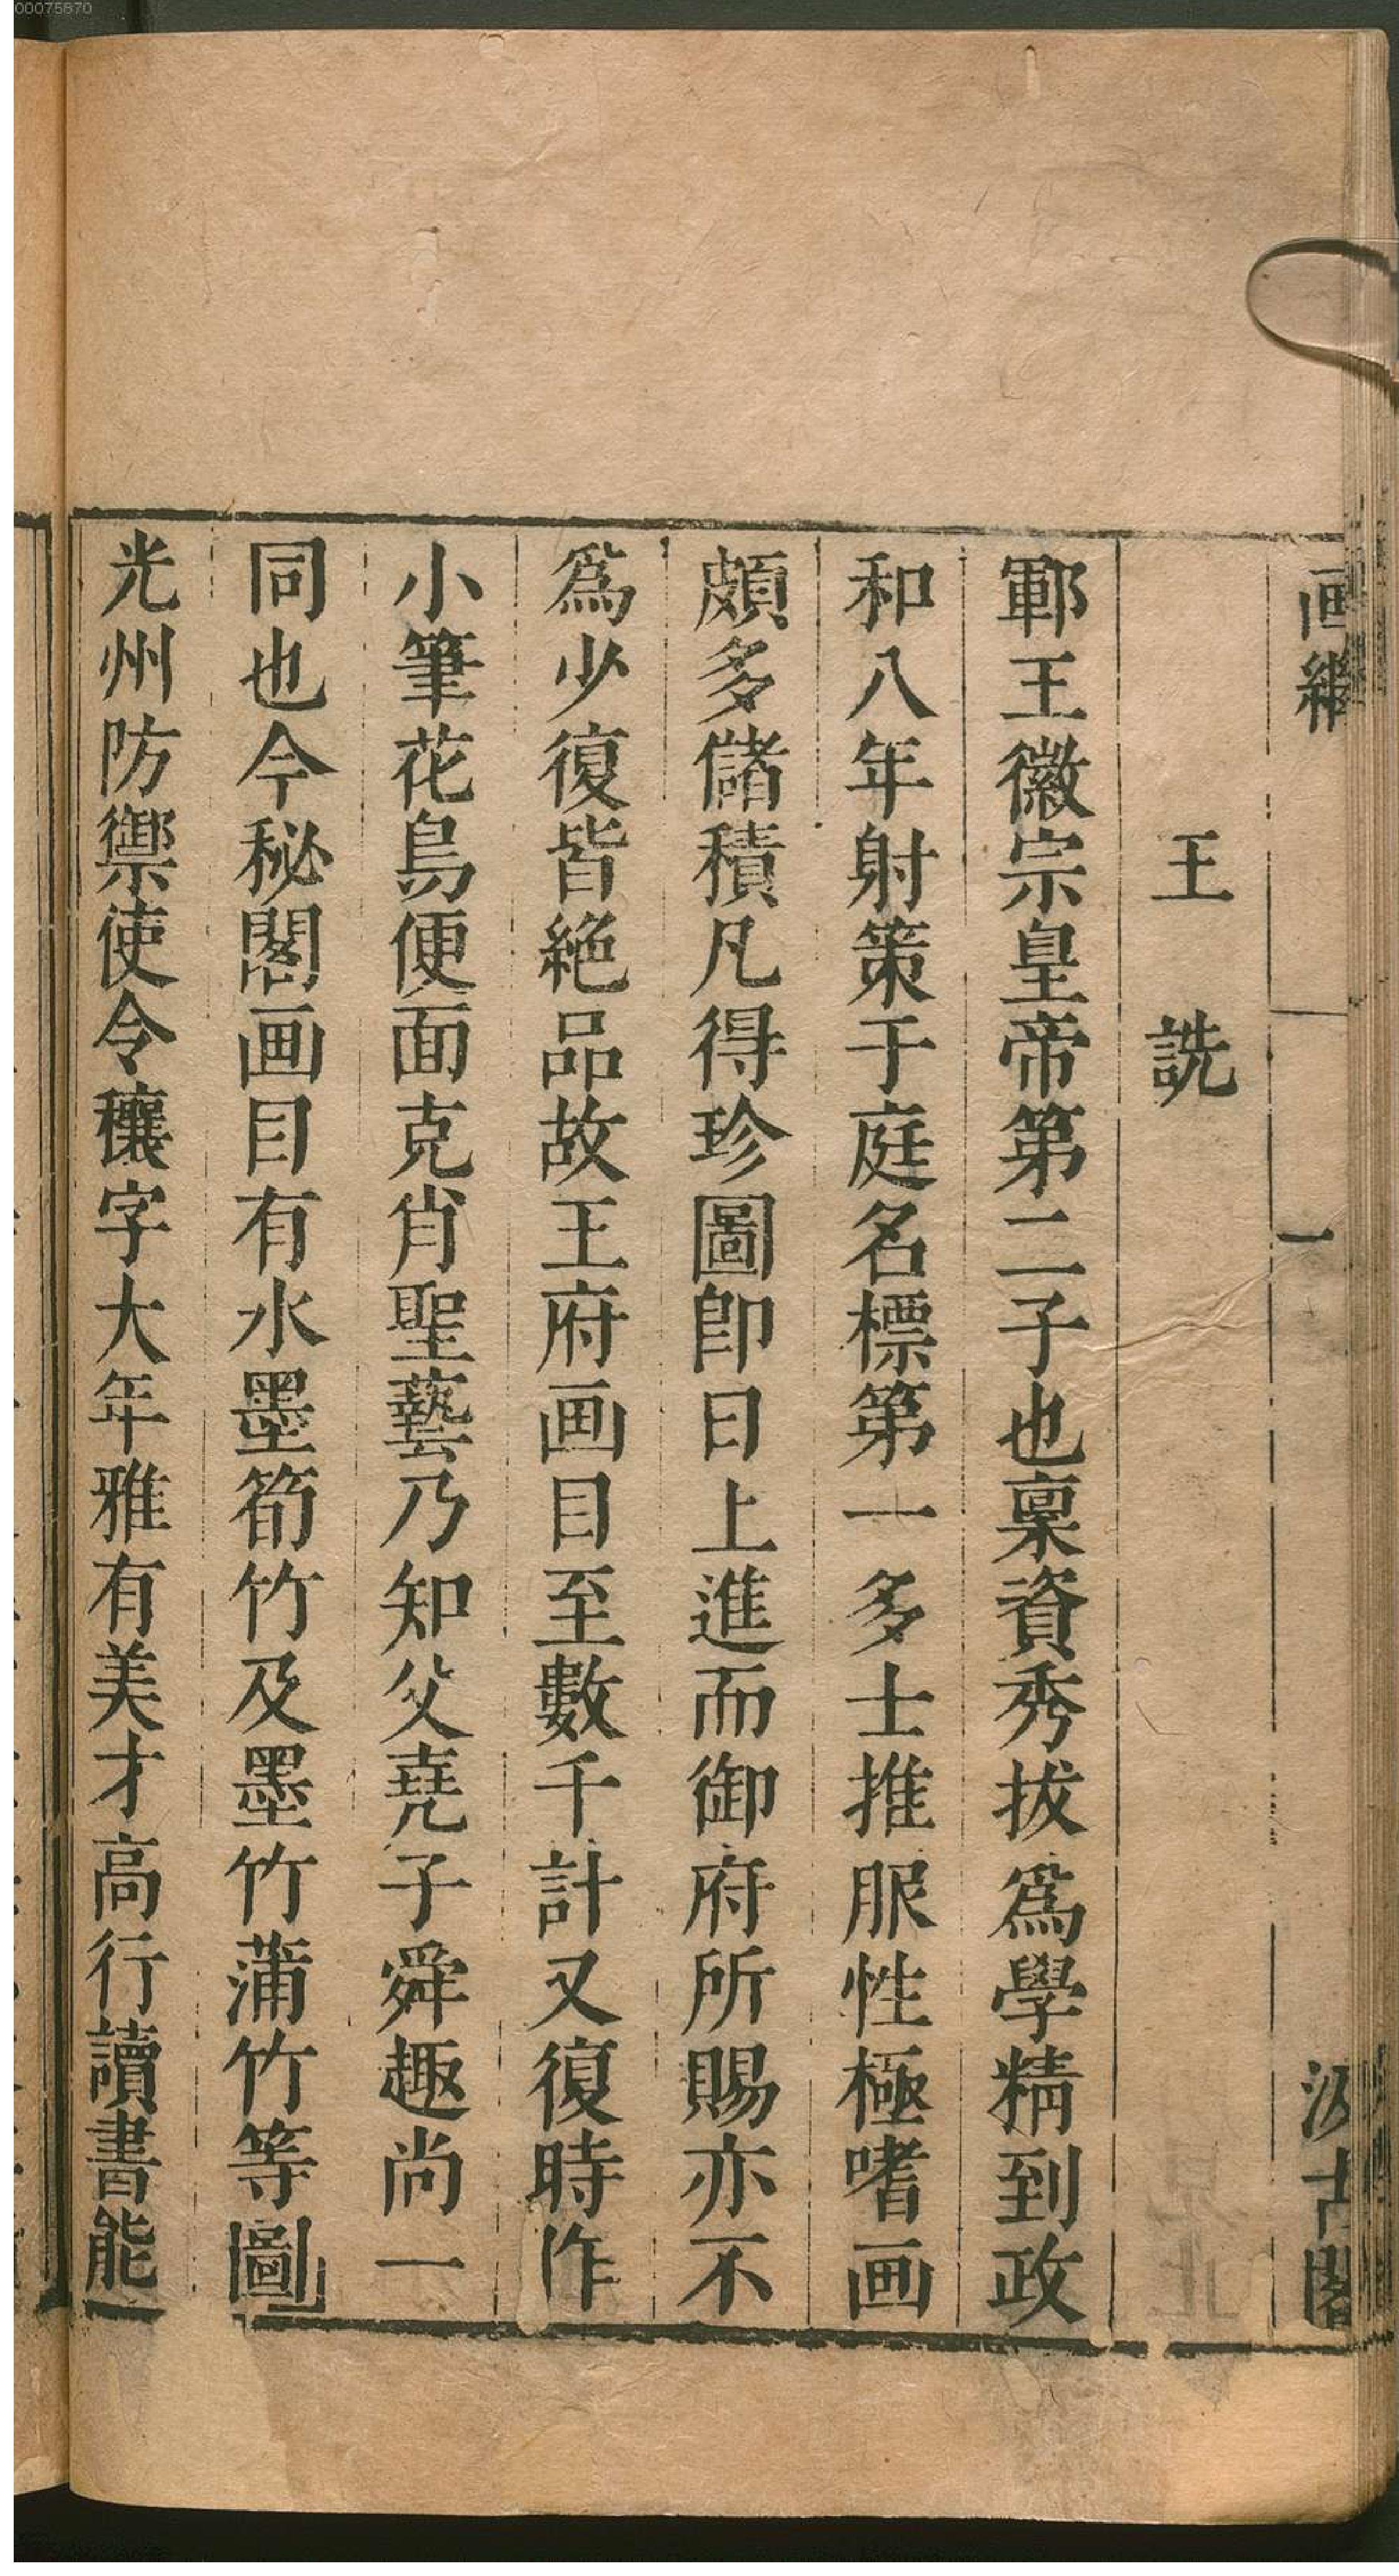 00075870
画繼 一 汲古閣
王詵
鄆王徽宗皇帝第二子也稟資秀拔爲學精到政
和八年射策于庭名標第一多士推服性極嗜画
頗多儲積凡得珍圖卽日上進而御府所賜亦不
爲少復皆絶品故王府画目至數千計又復時作
小筆花鳥便面克肖聖藝乃知父堯子舜趣尚一
同也今秘閣画目有水墨筍竹及墨竹蒲竹等圖
光州防禦使令穰字大年雅有美才高行讀書能